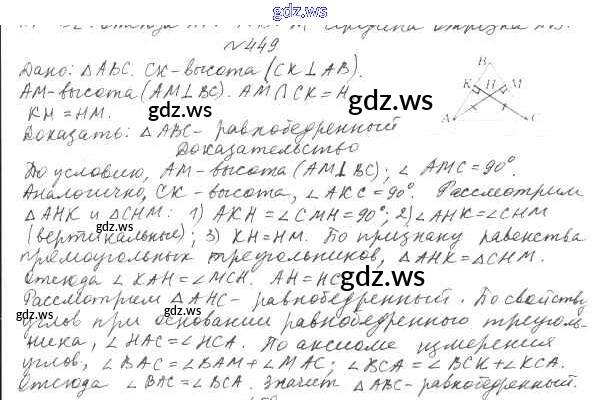 gdz.ws
середина отрезка
№449
Дано: △ABC. CK-высота (CK⊥AB).
AM-высота (AM⊥BC). AM∩CK=H
KH=HM.
gdz.ws
gdz.ws
Доказать: △ABC- равнобедренный
Доказательство
B
K H M
A C
По условию, AM-высота (AM⊥BC); ∠AMC=90°.
Аналогично, CK-высота, ∠AKC=90°. Рассмотрим
△AHK и △CHM: 1) AKH=∠CMH=90°; 2) ∠AHK=∠CHM
(вертикальные); 3) KH=HM. По признаку равенства
прямоугольных треугольников, △AHK=△CHM.
Отсюда ∠KAH=∠MCH. AH=HC
gdz.ws
Рассмотрим △AHC- равнобедренный. По свойству
углов при основании равнобедренного треуголь-
ника, ∠HAC=∠HCA. По аксиоме измерения
углов, ∠BAC=∠BAM+∠MAC; ∠BCA=∠BCK+∠KCA.
Отсюда ∠BAC=∠BCA. Значит △ABC-равнобедренный.
gdz.ws